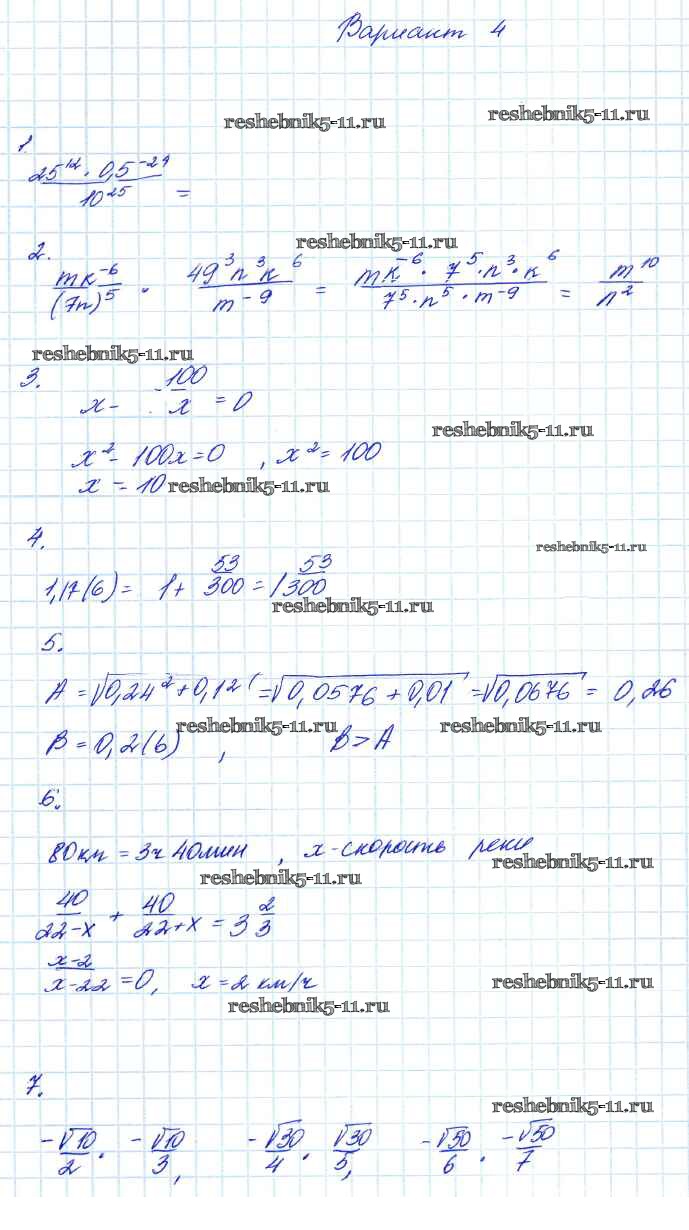 Вариант 4
reshebnik5-11.ru reshebnik5-11.ru
1.
25^12 · 0,5^-24 / 10^25 =
reshebnik5-11.ru
2.
mk^-6 / (7n)^5 · 49^3 n^3 k^6 / m^-9 = mk^-6 · 7^5 · n^3 · k^6 / 7^5 · n^5 · m^-9 = m^10 / n^2
reshebnik5-11.ru
3.
x - 100/x = 0
reshebnik5-11.ru
x^2 - 100x = 0 , x^2 = 100
x = 10 reshebnik5-11.ru
4.
reshebnik5-11.ru
1,17(6) = 1 + 53/300 = 1 53/300
reshebnik5-11.ru
5.
A = √0,24^2 + 0,1^2 = √0,0576 + 0,01 = √0,0676 = 0,26
reshebnik5-11.ru reshebnik5-11.ru
B = 0,2(6) , B > A
6.
80км = 3ч 40мин , x - скорость реки
reshebnik5-11.ru
reshebnik5-11.ru
40/22-x + 40/22+x = 3 2/3
x-2/x-22 = 0, x = 2 км/ч
reshebnik5-11.ru
reshebnik5-11.ru
7.
reshebnik5-11.ru
-√10/2 · -√10/3, -√30/4 · √30/5, -√50/6 · -√50/7